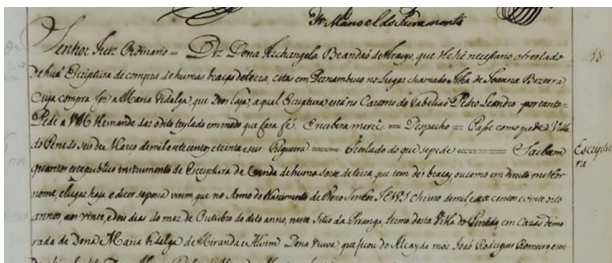 Fr Manoel do Sacramento
Senhor Juiz Ordinario = Diz Dona Archangela Brandaõ de Araujo, que lhe hé necesario o treslado
de huã Escriptura de compra de humas braças de terra, citas em Pernambuco no Lugar chamado Ilha de Joanna Bezerra
Cuja compra fez a Maria Fidalga, que Deos haja, a qual Escriptura está no Cartorio do Tabeliaõ Pedro Leandro portanto =
Pede a VM lhe mande das o dito em modo que faça fé E recebera mercê = Despacho = Passe como pede Villa
do Penedo seis de Marco de mil e sete centos e trinta e seis Figueira = Treslado do que se pede = Saibam
Escriptu
ra.
quantos este publico instrumento de Escriptura de venda de huma de terra, que tem dez braças ou como em direito melhor
nome, e lugar haja, e dizer se possa virem, que no Anno do Nascimento de Nosso Senhor JESVS Christo de mil e sete centos e vinte oito
annos, aos vinte, e dois dias do mez de Outubro do dito anno, neste Sitio da Piranga, termo desta Villa do Penedo, em Cazas de mo-
rada de Dona Maria Fidalga de Miranda e Alvim Dona Viuva, que ficou do Alcayde mór Joaõ Rodrigues